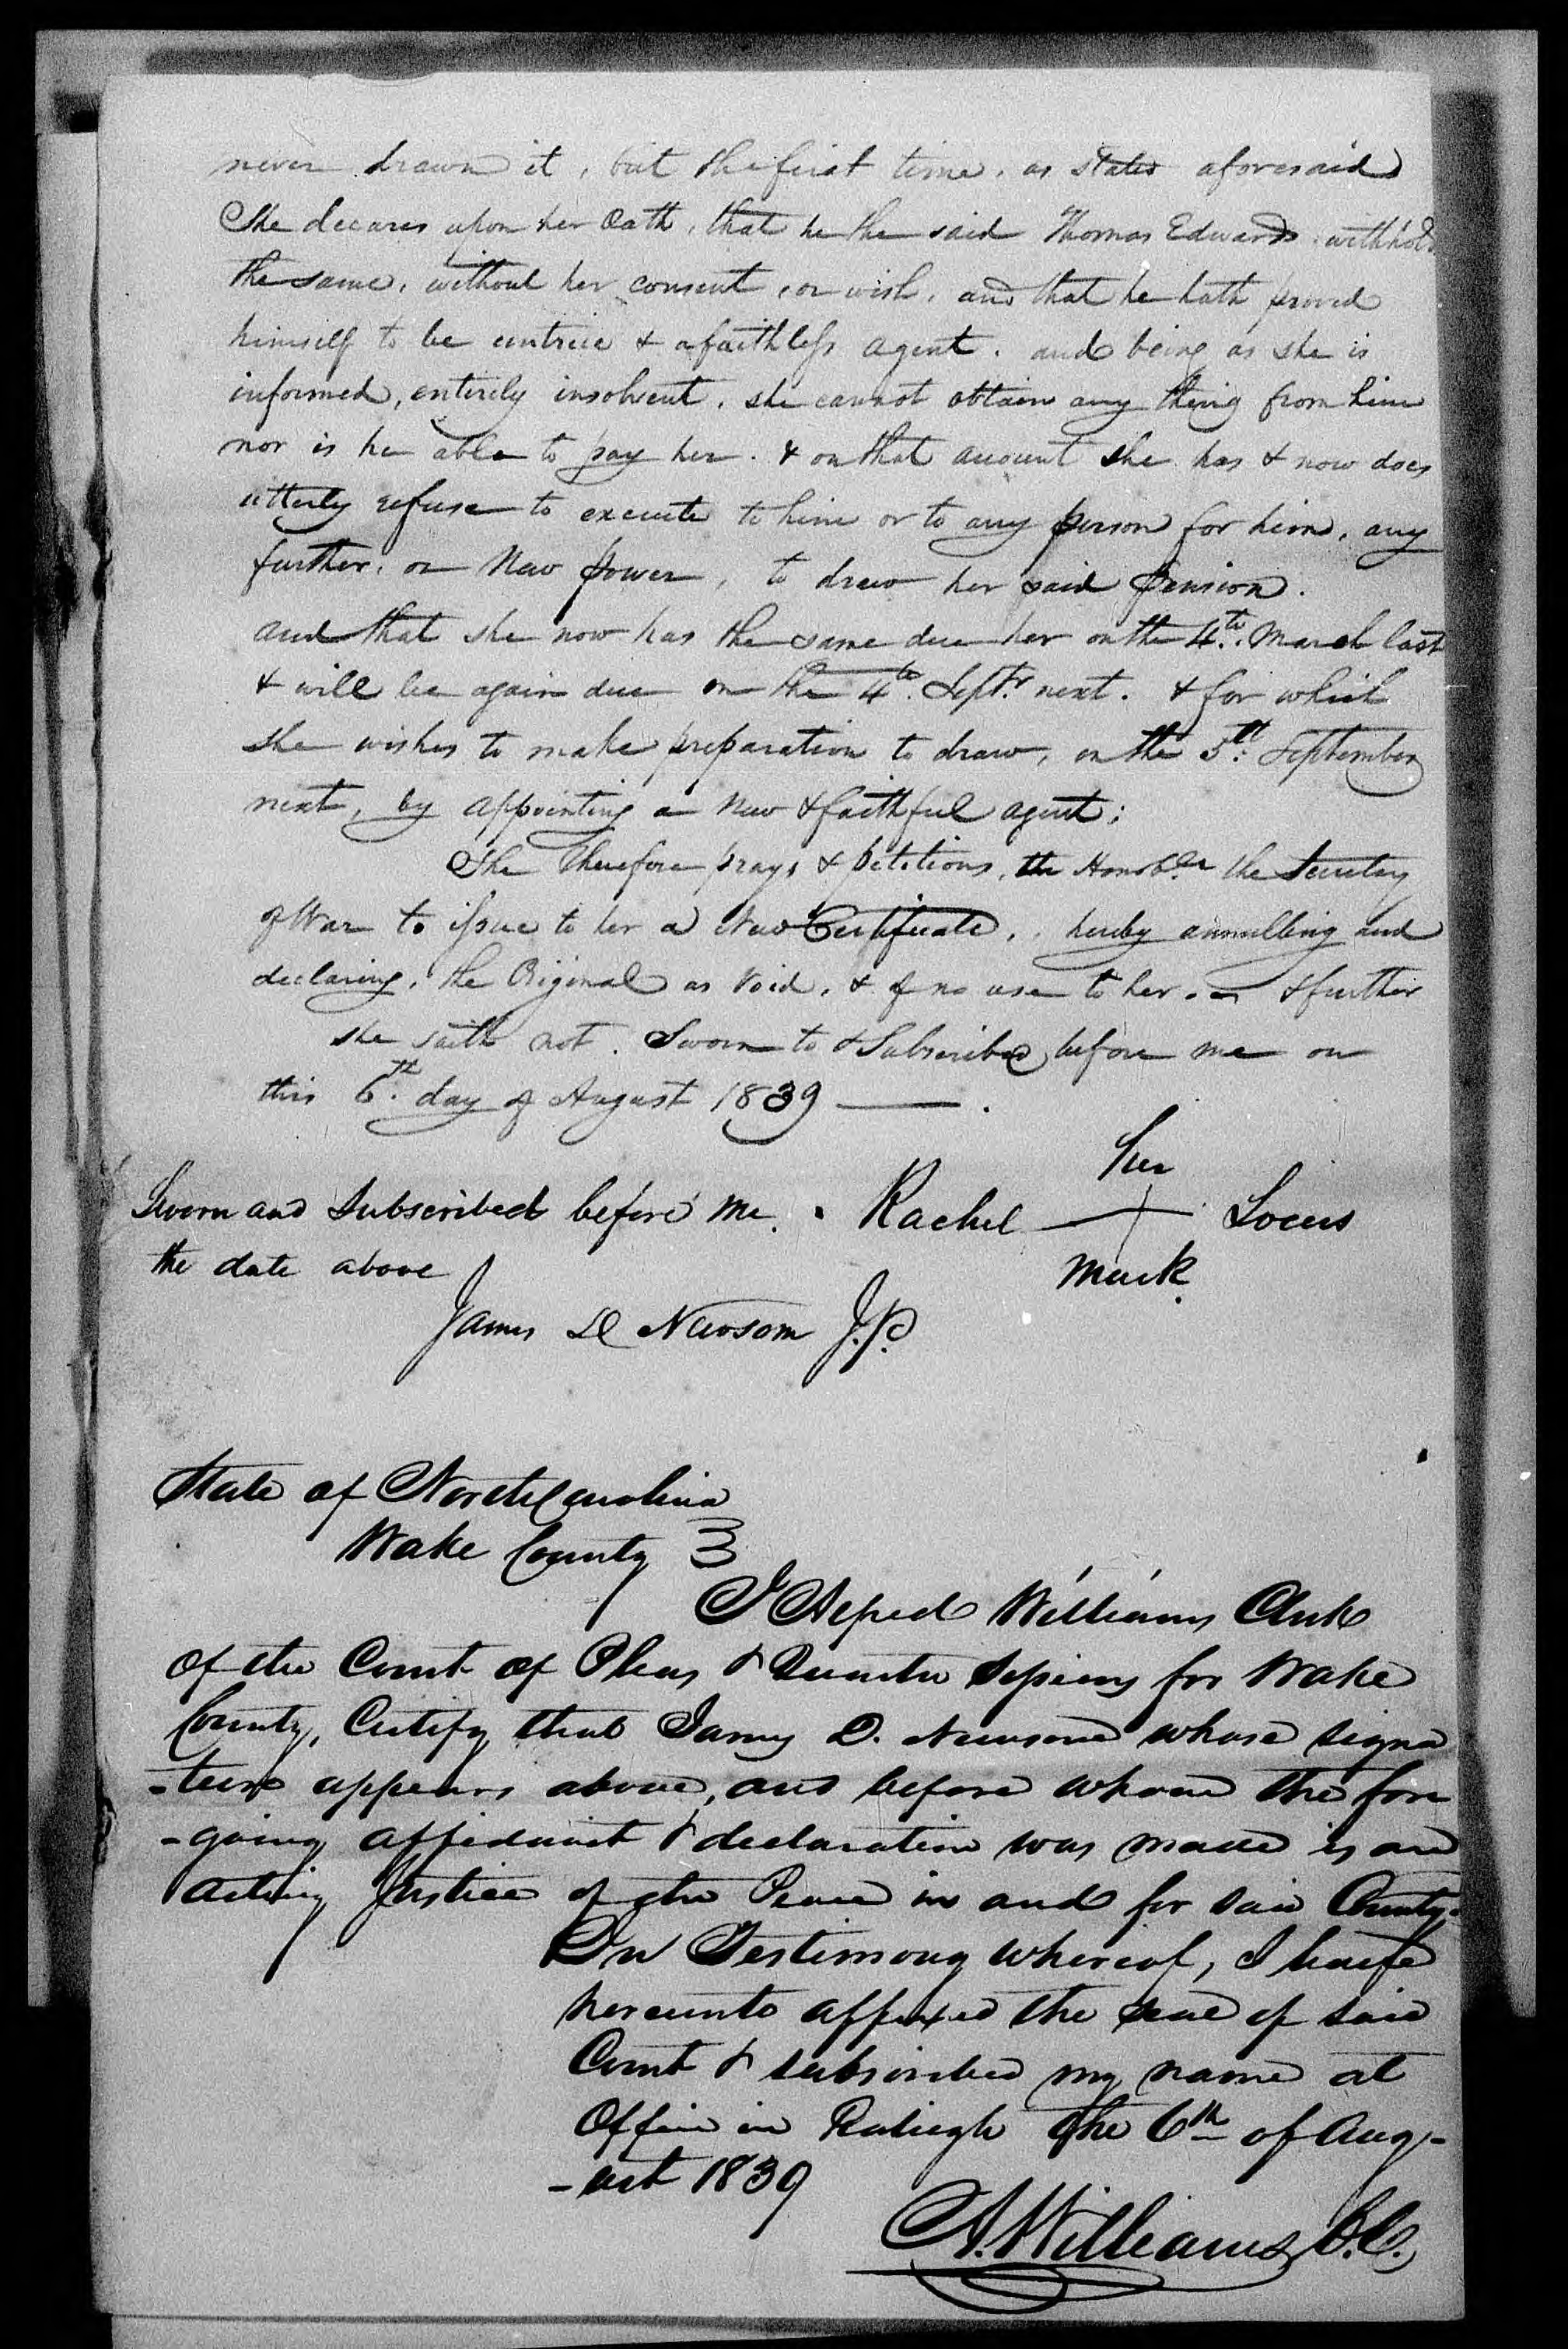 never drawn it, but the first time, as states aforesaid
She decares upon her Oath, that he the said Thomas Edwards withholds
the same, without her consent, or wish, and that he hath proved
himself to be & a faithless agent. and being as she is
informed, entirely insolvent, she cannot obtain any thing from him
nor is he able to pay her. & on that account she has & now does
utterly refuse to execute to him or to any person for him, any
further, or New power, to draw her said Pension.
and that she now has the same due her on the 4th. March last
& will be again due on the 4th. Septr. next. & for which
she wishes to make preparation to draw, on the 5th. September
next, by appointing a New & faithful agent;
She Therefore prays & petitions, the Honorble the Secretary
of War to issue to her a New Certificate, hereby annulling and
declaring, the Original as Void, & of no use to her. & further
she saith not. Sworn to & Subscribed before me on
this 6th. day of August 1839 —.
her
Sworn and Subscribed before me. Rachel + Locus
the date above mark.
James D Newsom J.P.
State of North Carolina
Wake County
I Alfred Williams Clerk
of the Court of Pleas & Quarter Sessions for Wake
County, Certify that James D. Newsom whose signa
-ture appears above, and before whom the fore
-going affidavit & declaration was made is an
acting Justice of the Peace in and for said County.
In Testimony whereof, I have
hereunto affixed the seal of said
Court & subscribed my name at
Office in Raleigh the 6th of Aug-
-ust 1839
A. Williams, C.C.